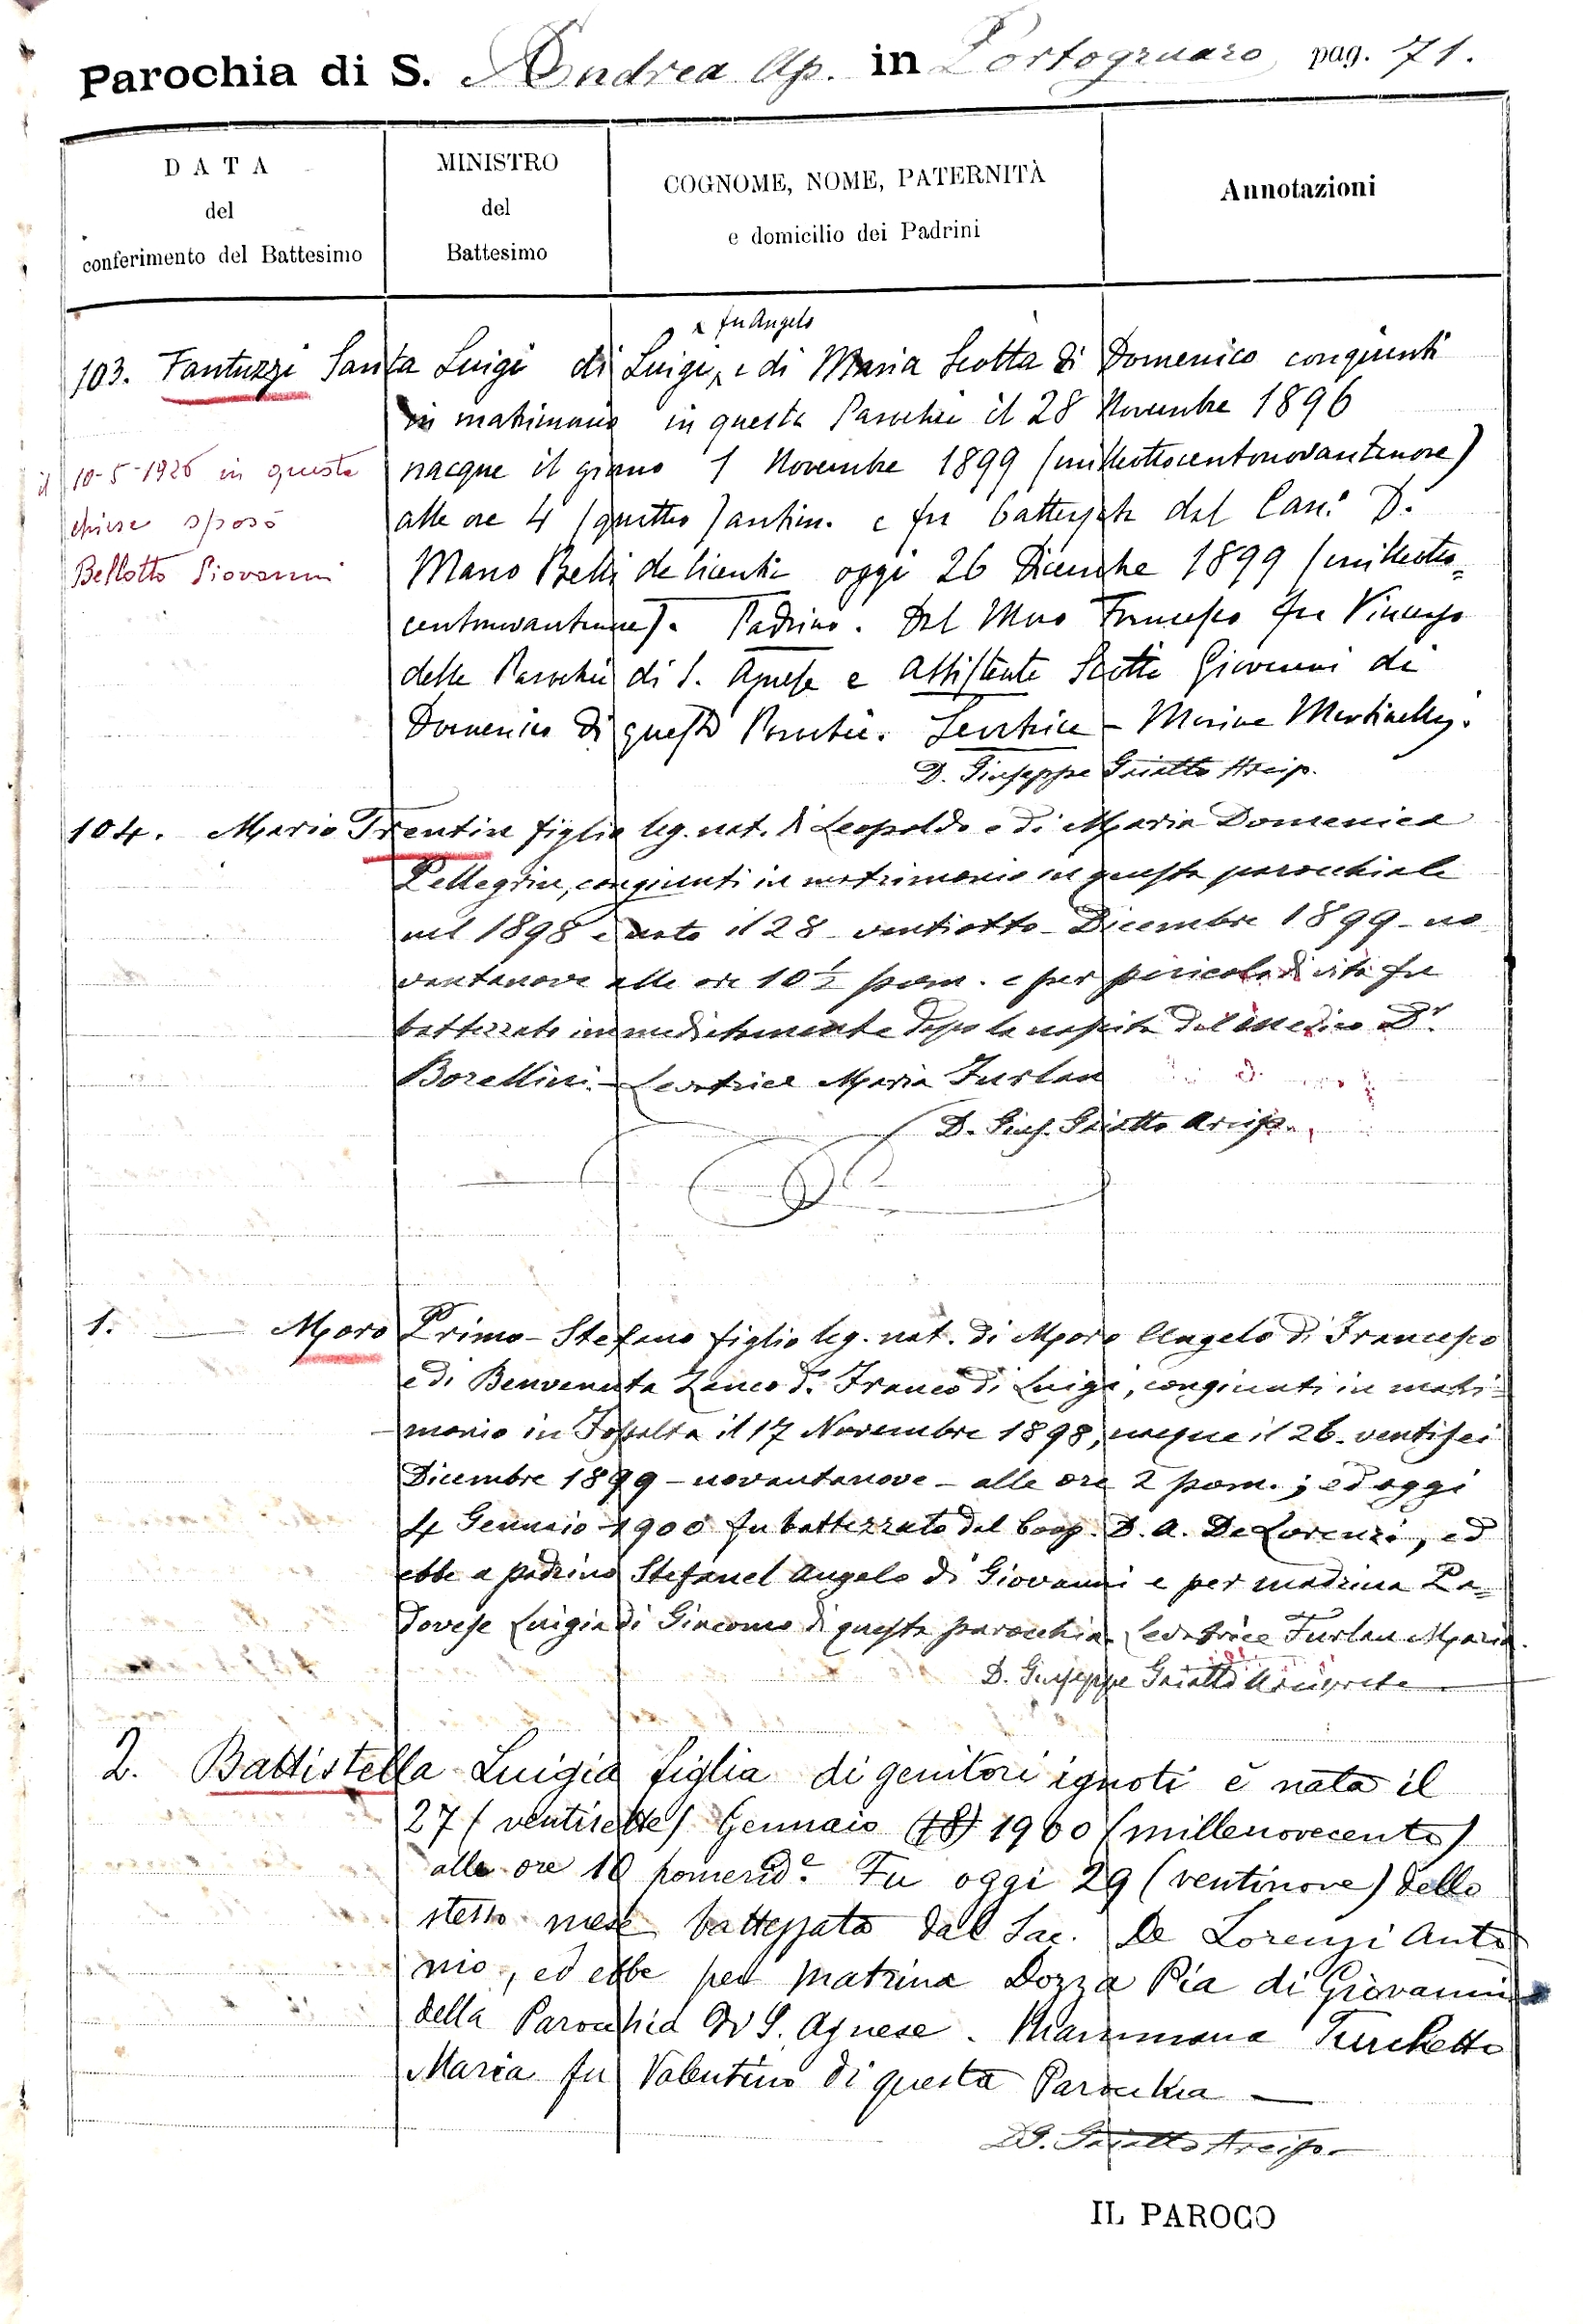 Parochia di S. Andrea Ap. in Portogruaro pag. 71.
DATA
del
conferimento del Battesimo
MINISTRO
del
Battesimo
COGNOME, NOME, PATERNITÀ
e domicilio dei Padrini
Annotazioni
fu Angelo
103. Fantuzzi Santa Luigi di Luigi, e di Maria Scotta di Domenico congiunti
in matrimonio in questa Parochia il 28 Novembre 1896
nacque il giorno 1 Novembre 1899 (milleottocentonovantanove)
alle ore 4 (quattro) antim. e fu battezzata dal Can.° D.
Belli de licentia oggi 26 Dicembre 1899 (milleotto=
centonovantanove). Padrino. Dal Moro Francesco fu Vincenzo
della Parochia di S. Agnese e assistente Scotta Giovanni di
Domenico di questa Parochia. Levatrice - Marina Martinelli.
D. Giuseppe Gaiatto Arcip.
il 10-5-1926 in questa
chiesa sposò
Bellotto Giovanni
104. Mario Trentin figlio leg. nat. di Leopoldo e di Maria Domenica
Pellegrin, congiunti in matrimonio in questa parocchiale
nel 1898 è nato il 28 - ventiotto - Dicembre 1899 - no
vantanove alle ore 10 1/2 pom. e per pericolo di vita fu
battezzato immediatamente dopo la nascita dal medico Dr.
Borellini. - Levatrice Maria Furlan
D. Gius. Gaiatto Arcip.
1. — Moro Primo - Stefano figlio leg. nat. di Moro Angelo di Francesco
e di Benvenuta Zanco d. Franco di Luigi, congiunti in matri=
monio in Fossalta il 17 Novembre 1898, nacque il 26 - ventisei
Dicembre 1899 - novantanove - alle ore 2 pom.; ed oggi
4 Gennaio 1900 fu battezzato dal Coop. D. A. De Lorenzi, ed
ebbe a padrino Stefanel Angelo di Giovanni e per madrina Pa=
dovese Luigia di Giacomo di questa parocchia. Levatrice Furlan Maria.
D. Giuseppe Gaiatto Arciprete
2. Battistella Luigia figlia di genitori ignoti è nata il
27 (ventisette) Gennaio (18) 1900 (millenovecento)
alle ore 10 pomerid.e Fu oggi 29 (ventinove) dello
stesso mese battezzata dal Sac. De Lorenzi Anto
nio, ed ebbe per matrina Dozza Pia di Giovanni
della Parochia di S. Agnese. Mammana Turchetto
Maria fu Valentino di questa Parochia —
D G. Gaiatto Arcip.
IL PAROCO